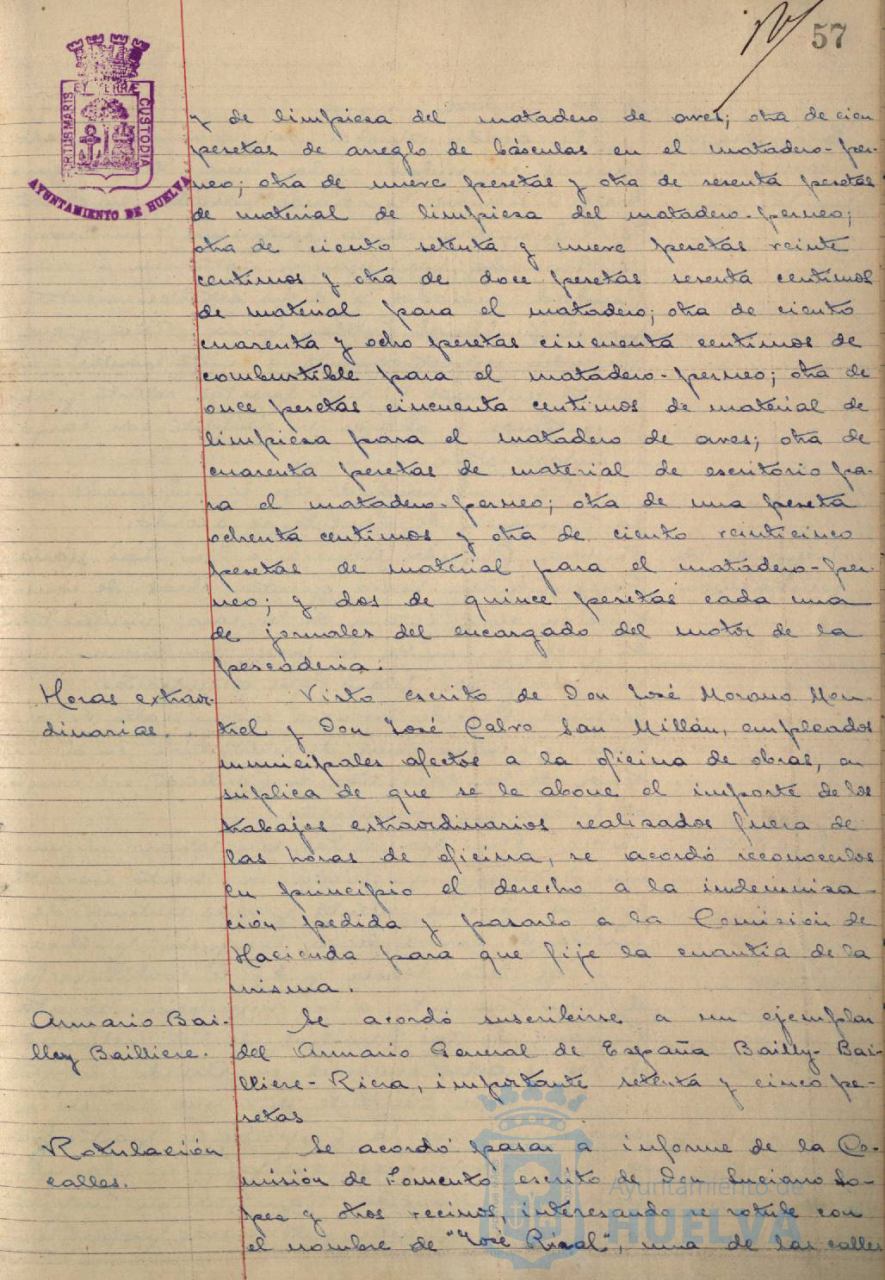 57
PORTUS MARIS ET TERRÆ CUSTODIA
AYUNTAMIENTO DE HUELVA
y de limpiesa del matadero de aves; otra de cien
pesetas de arreglo de básculas en el matadero-per-
neo; otra de nueve pesetas y otra de sesenta pesetas
de material de limpiesa del matadero-perneo;
otra de ciento setenta y nueve pesetas veinte
centimos y otra de doce pesetas sesenta centimos
de material para el matadero; otra de ciento
cuarenta y ocho pesetas cincuenta centimos de
combustible para el matadero-perneo; otra de
once pesetas cincuenta centimos de material de
limpiesa para el matadero de aves; otra de
cuarenta pesetas de material de escritorio pa-
ra el matadero-perneo; otra de una peseta
ochenta centimos y otra de ciento veinticinco
pesetas de material para el matadero-per-
neo; y dos de quince pesetas cada una
de jornales del encargado del motor de la
pescaderia.
Horas extraor-
dinarias.
Visto escrito de Don José Morano Mon-
tiel y Don José Calvo San Millán, empleados
municipales afectos a la oficina de obras, en
súplica de que se le abone el importe de los
trabajos extraordinarios realizados fuera de
las horas de oficina, se acordó reconocerlos
en principio el derecho a la indemnisa-
ción pedida y pasarlo a la Comisión de
Hacienda para que fije la cuantia de la
misma.
Anuario Bai-
lley Bailliere.
Se acordó suscribirse a un ejemplar
del Anuario General de España Bailly-Bai-
lliere-Riera, importante setenta y cinco pe-
setas
Rotulación
calles.
Se acordó pasar a informe de la Co-
misión de Fomento escrito de Don Luciano Lo-
pes y otros vecinos, interesando se rotule con
el nombre de "José Rizal", una de las calles
Ayuntamiento de
HUELVA